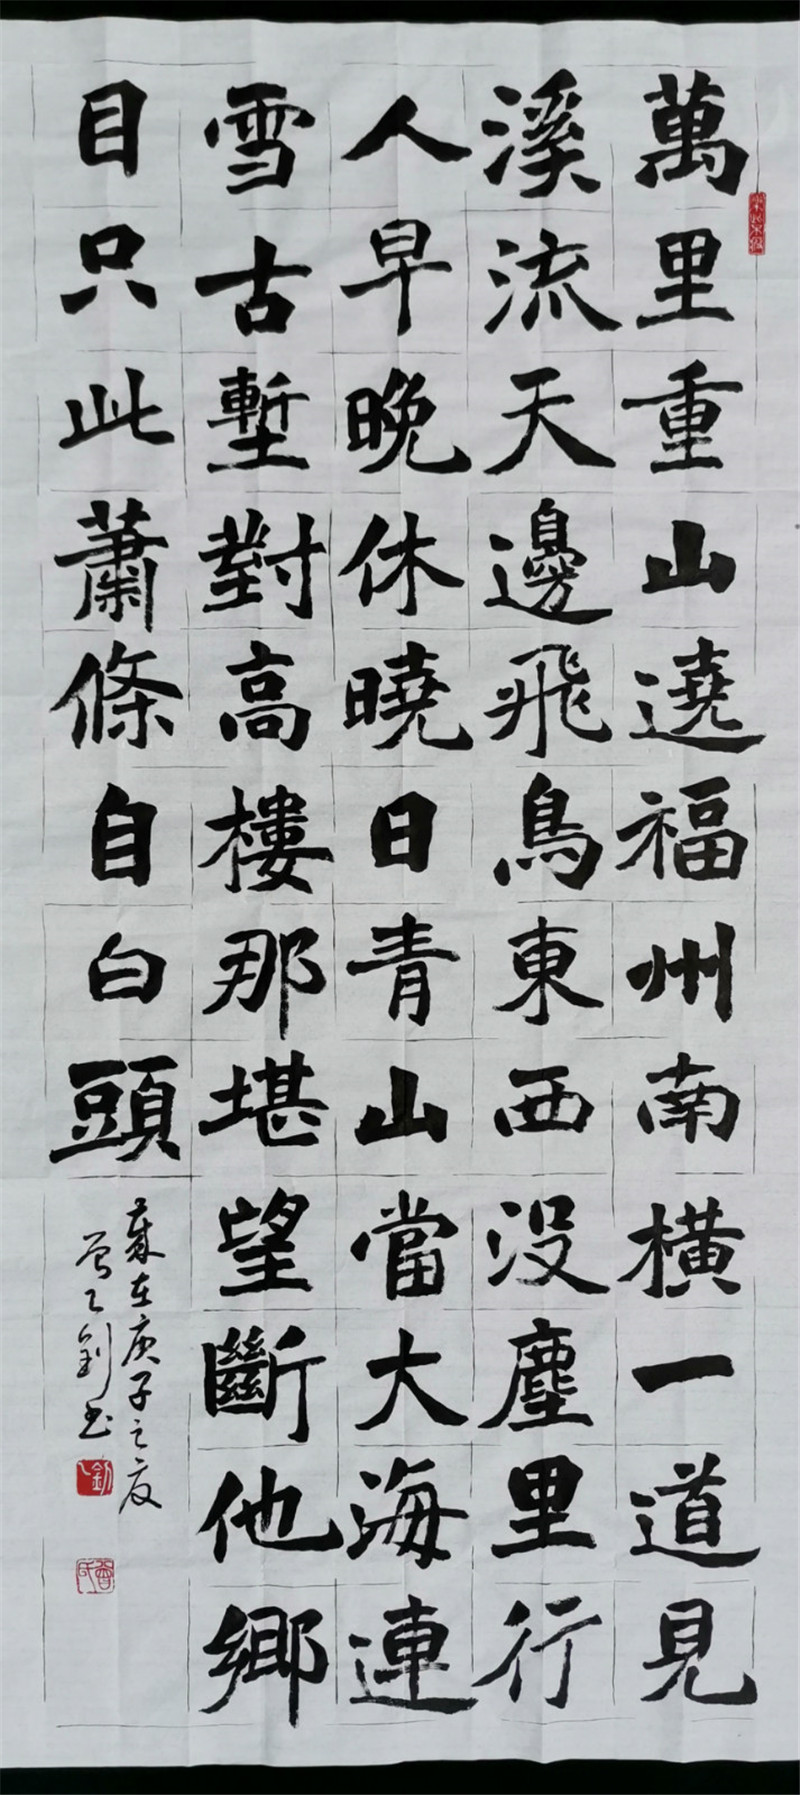 萬里重山遶福州南橫一道見
溪流天邊飛鳥東西没塵里行
人早晚休曉日青山當大海連
雪古塹對高樓那堪望斷他鄉
目只此蕭條自白頭
歲在庚子之夏
曾乙釗書